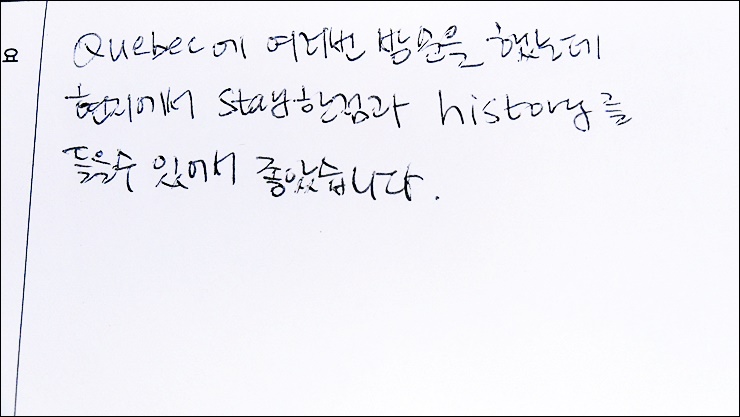 요
Quebec에 여러번 방문을 했는데
현지에서 stay한점과 history를
들을수 있어서 좋았습니다.